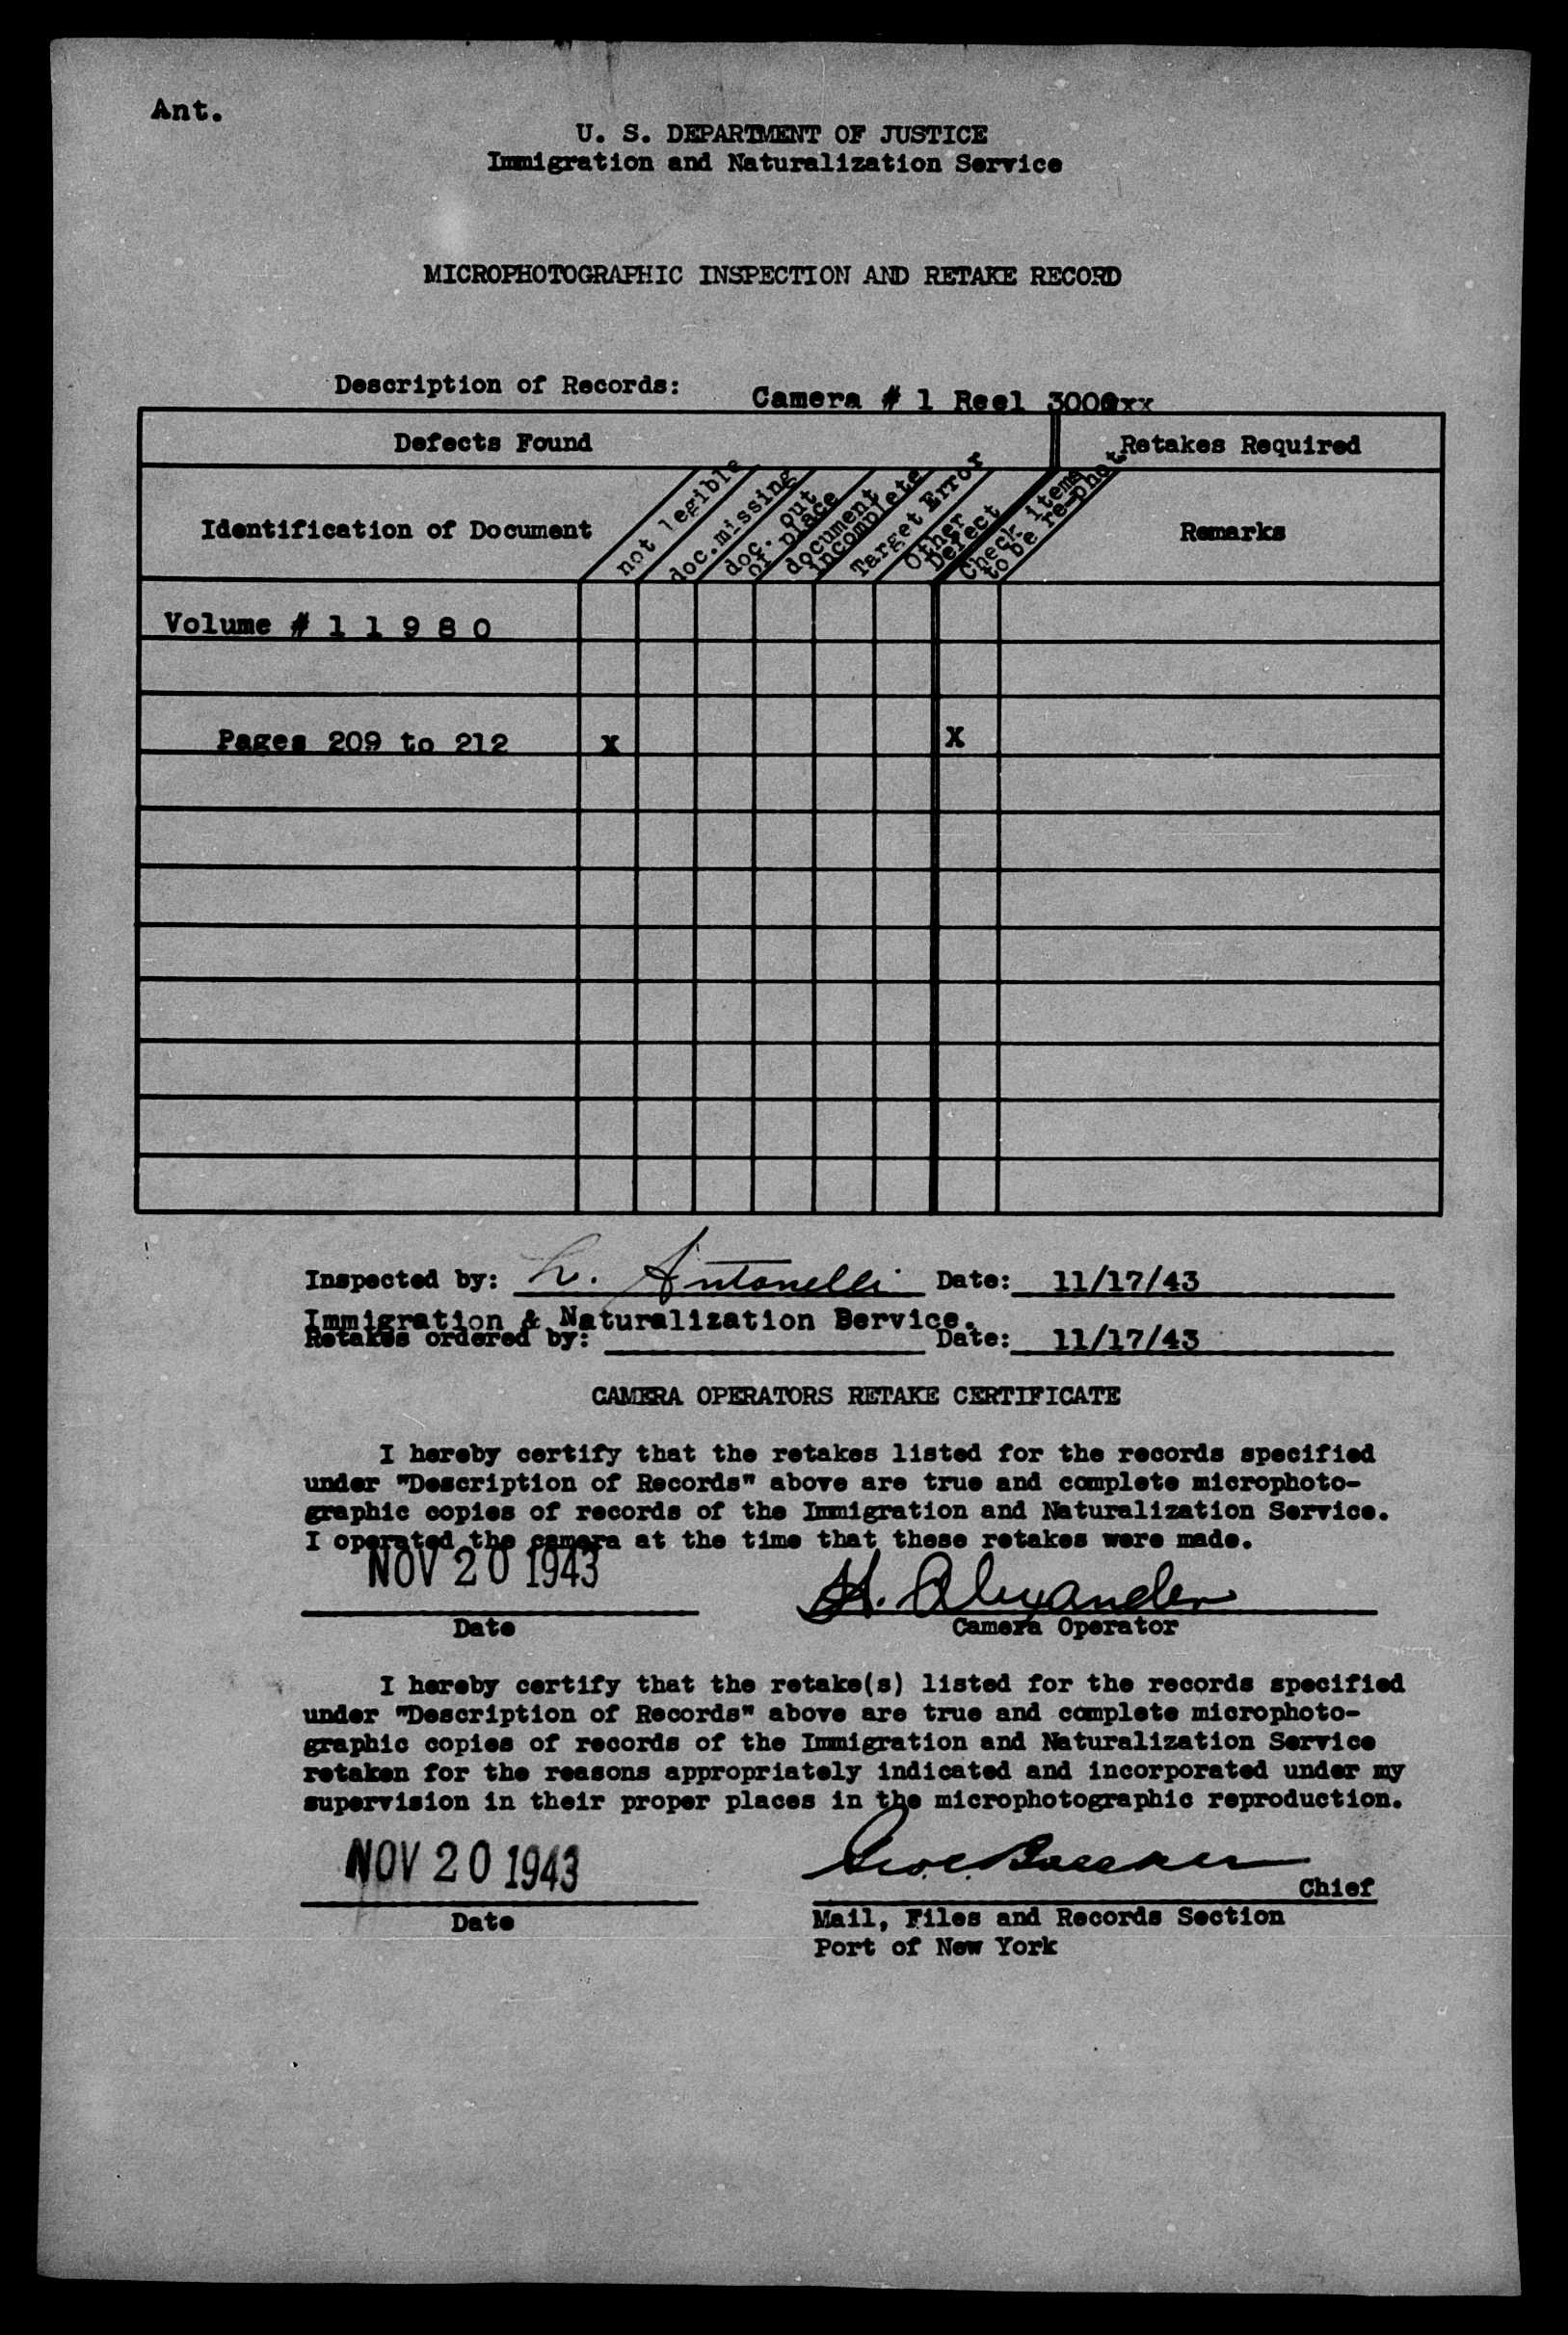 Ant.
U. S. DEPARTMENT OF JUSTICE
Immigration and Naturalization Service
MICROPHOTOGRAPHIC INSPECTION AND RETAKE RECORD
Description of Records: Camera # 1 Reel
Defects Found Retakes Required
Identification of Document
not legible
doc. missing
doc. out
of place
document
incomplete
Target Error
Other
Defect
Check items
to be re-phot
Remarks
Volume # 1 1 9 8 0
Pages 209 to 212 x X
Inspected by: L. Antonelli Date: 11/17/43
Immigration & Naturalization Service.
Retakes ordered by: Date: 11/17/43
CAMERA OPERATORS RETAKE CERTIFICATE
I hereby certify that the retakes listed for the records specified
under "Description of Records" above are true and complete microphoto-
graphic copies of records of the Immigration and Naturalization Service.
I operated the camera at the time that these retakes were made.
NOV 20 1943 H. Alexander
Date Camera Operator
I hereby certify that the retake(s) listed for the records specified
under "Description of Records" above are true and complete microphoto-
graphic copies of records of the Immigration and Naturalization Service
retaken for the reasons appropriately indicated and incorporated under my
supervision in their proper places in the microphotographic reproduction.
NOV 20 1943
Chief
Date Mail, Files and Records Section
Port of New York